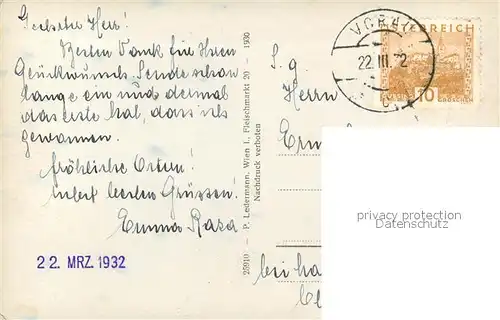 Geehrter Herr!
Besten Dank für Ihren
Glückwunsch. Sende schon
lange ein und dermal
das erste hat, dass ich
gewonnen.
fröhliche Ostern!
nebst besten Grüssen!
Emma
22. MRZ. 1932
25910 - P. Ledermann, Wien I., Fleischmarkt 20 - 1930
Nachdruck verboten
VORAU
22. III. 32
ÖSTERREICH
10 GROSCHEN
S. g
Herrn
bei
privacy protection
Datenschutz